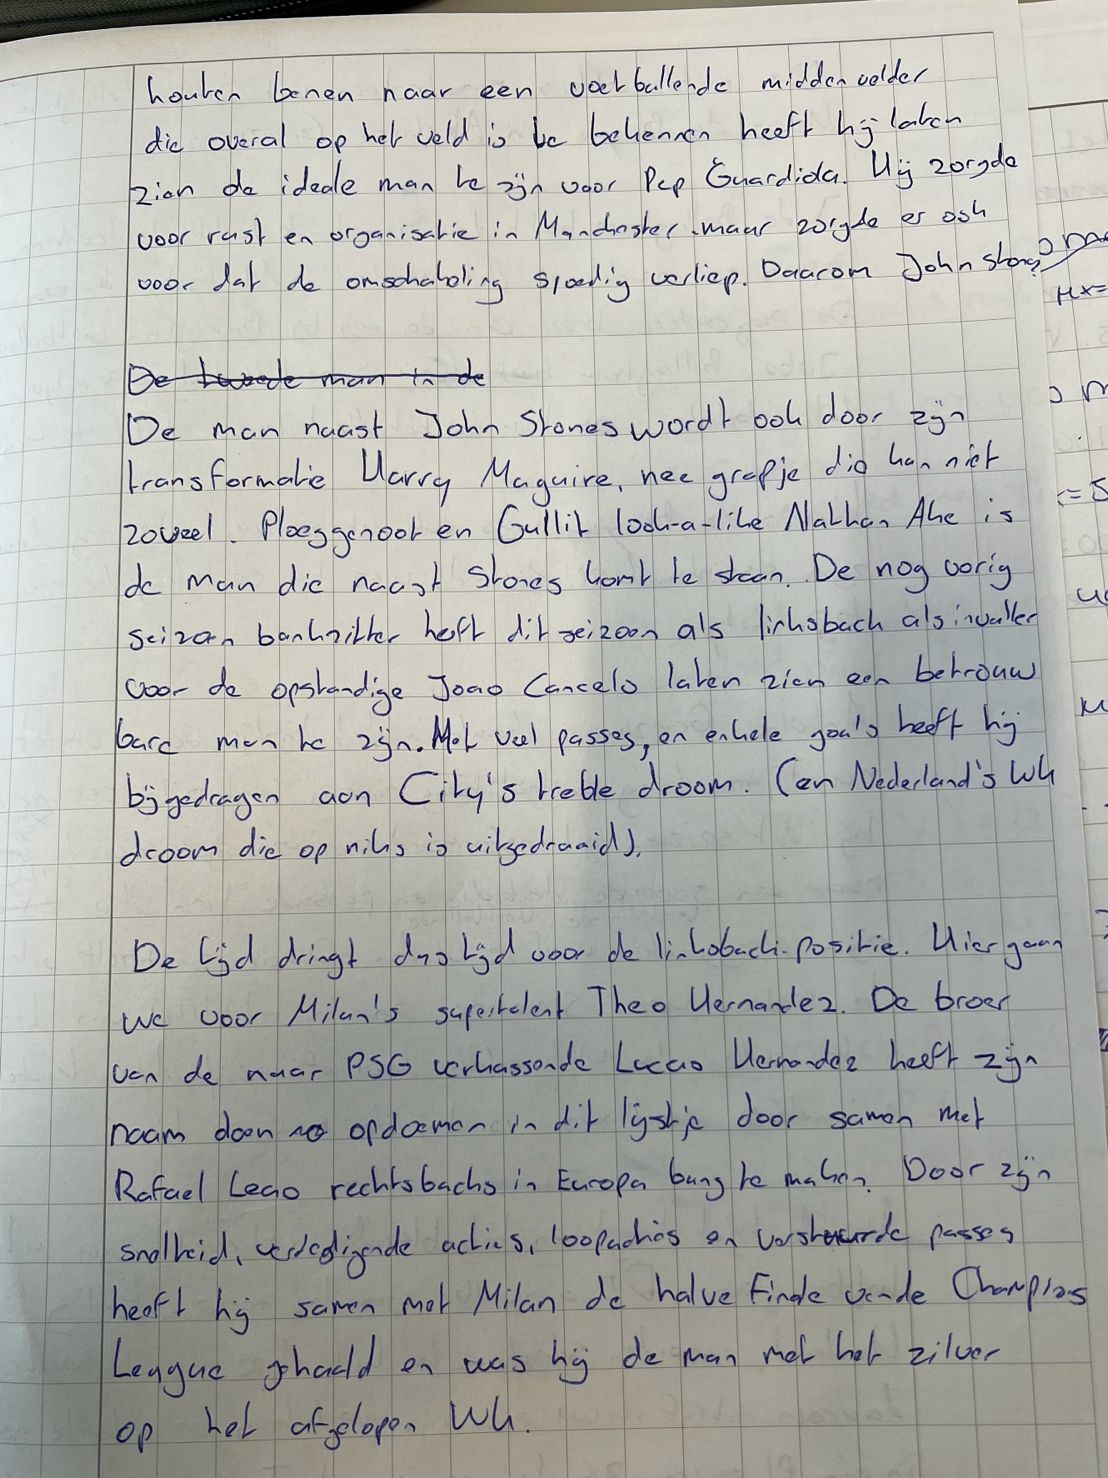 houten benen naar een voetballende middenvelder
die overal op het veld is te bekennen heeft hij laten
zien de ideale man te zijn voor Pep Guardiola. Hij zorgde
voor rust en organisatie in Manchester maar zorgde er ook
voor dat de omschakeling spoedig verliep. Daarom John Stones
De tweede man in de
De man naast John Stones wordt ook door zijn
transformatie Harry Maguire, nee grapje die kan niet
zoveel. Ploeggenoot en Gullit look-a-like Nathan Ake is
de man die naast Stones komt te staan. De nog vorig
seizoen bankzitter heeft dit seizoen als linksback als invaller
voor de opstandige Joao Cancelo laten zien een betrouw
bare man te zijn. Met veel passes, en enkele goals heeft hij
bijgedragen aan City's treble droom. (en Nederland's WK
droom die op niks is uitgedraaid).
De tijd dringt dus tijd voor de linksback-positie. Hier gaan
we voor Milan's supertalent Theo Hernandez. De broer
van de naar PSG verkassende Lucas Hernandez heeft zijn
naam doen opdoemen in dit lijstje door samen met
Rafael Leao rechtsbacks in Europa bang te maken. Door zijn
snelheid, verdedigende acties, loopacties en verstuurde passes
heeft hij samen met Milan de halve finale van de Champions
League gehaald en was hij de man met het zilver
op het afgelopen WK.